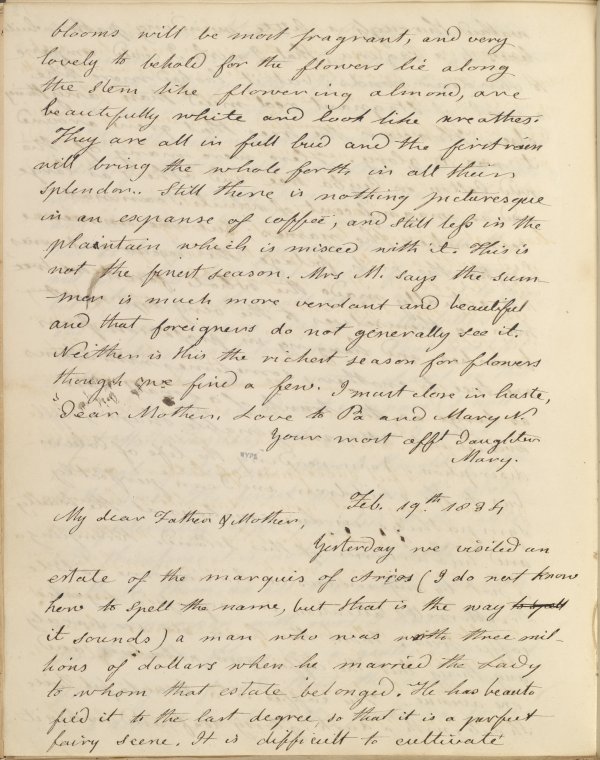 blooms will be most fragrant, and very
lovely to behold for the flowers lie along
the stem like flowering almond, are
beautifully white and look like wreathes.
They are all in full bud and the first rain
will bring the whole forth in all their
splendor. Still there is nothing picturesque
in an expanse of coffee, and still less in the
plaintain which is mixed with it. This is
not the finest season. Mrs M. says the sum-
mer is much more verdant and beautiful
and that foreigners do not generally see it.
Neither is this the richest season for flowers
though we find a few. I must close in haste,
Dear Mother. Love to Pa and Mary N.
Your most afft daughter
Mary.
Feb. 19th 1834
My dear Father & Mother,
Yesterday we visited an
estate of the marquis of Arcos (I do not know
how to spell the name, but that is the way to spell
it sounds) a man who was worth three mil-
lions of dollars when he married the Lady
to whom that estate belonged. He has beauti
fied it to the last degree, so that it is a perfect
fairy scene. It is difficult to cultivate